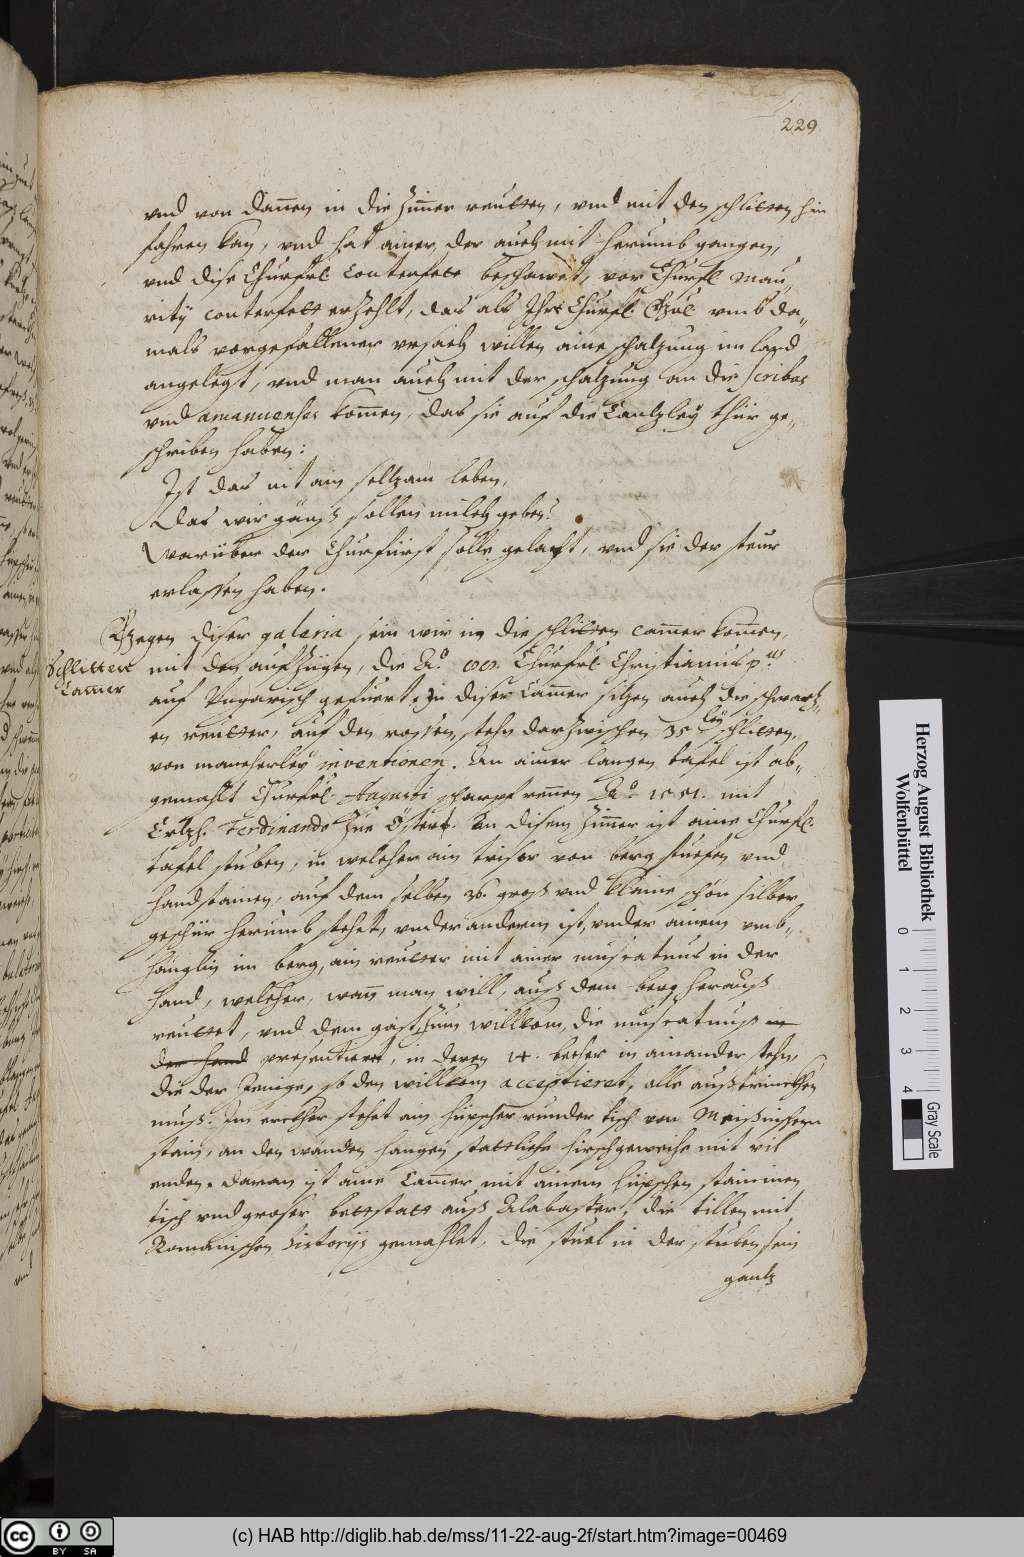 229
vnd von dannen in die Zimer reutten, vnd mit den schlitten hin
fahren kan, vnd hat ainer, der auch mit herumb gangen,
vnd dise Churfrl. Conterfete beschawet, vor Churfl. Mau„
rity conterfett erzehlt, das als Ihre Churfl. Gn. vmb da„
mals vorgefallener vrsach willen aine schatzung im land
angelegt, vnd man auch mit der schatzung an die scribas
vnd amanuenses komen, das sie auf die Cantzley thür ge„
schriben haben:
Ist das nit ain seltzam leben,
Das wir gänß sollen milch geben?
Warüber der Churfürst solle gelacht, vnd sie der steur
erlassen haben.
Gegen diser galeria sein wir in die schlitten camer komen,
Schlitten
Camer
mit den aufzügen, die Aº. Churfrl. Christianus pus
auf Vngarisch gefüert. In diser Camer sitzen auch die schwartz„
en reutter, auf den rossen, stehn darzwischen 35 schlitten,
von mancherley inventionen. An ainer langen tafel ist ab„
gemahlt Churfrl. Augusti scharpf rennen Aº. mit
Ertzh. Ferdinando zue Österr. An disem Zimer ist aine Churfl.
tafel stuben, in welcher ain trisor von berg stuefen vnd
handstainen, auf dem selben 36. groß vnd kleine schön silber
geschir herumb stehet, vnder anderm ist, vnder ainem vmb„
hänglin im berg, ain reutter mit ainer muscatnus in der
hand, welcher, wann man will, auß dem berg herauß
reuttet, vnd dem gast zum willkom, die muscatnuß in
der hand presentiert, in deren 14. becher in ainander stehn,
die der jenige, so den willkom acceptieret, alle außtrincken
muß. Im ercker stehet ain hüpscher runder tisch von Meißnischem
stain, an den wänden hangen stattliche hirschgeweihe mit vil
enden. Daran ist aine Camer mit ainem hüpschen staininen
tisch vnd grosser bettstatt auß Alabaster, die tillen mit
Romanischen historijs gemahlet, die stuel in der stuben sein
gantz
Herzog August Bibliothek
Wolfenbüttel
0 1 2 3 4
Gray Scale
cc BY SA
(c) HAB http://diglib.hab.de/mss/11-22-aug-2f/start.htm?image=00469